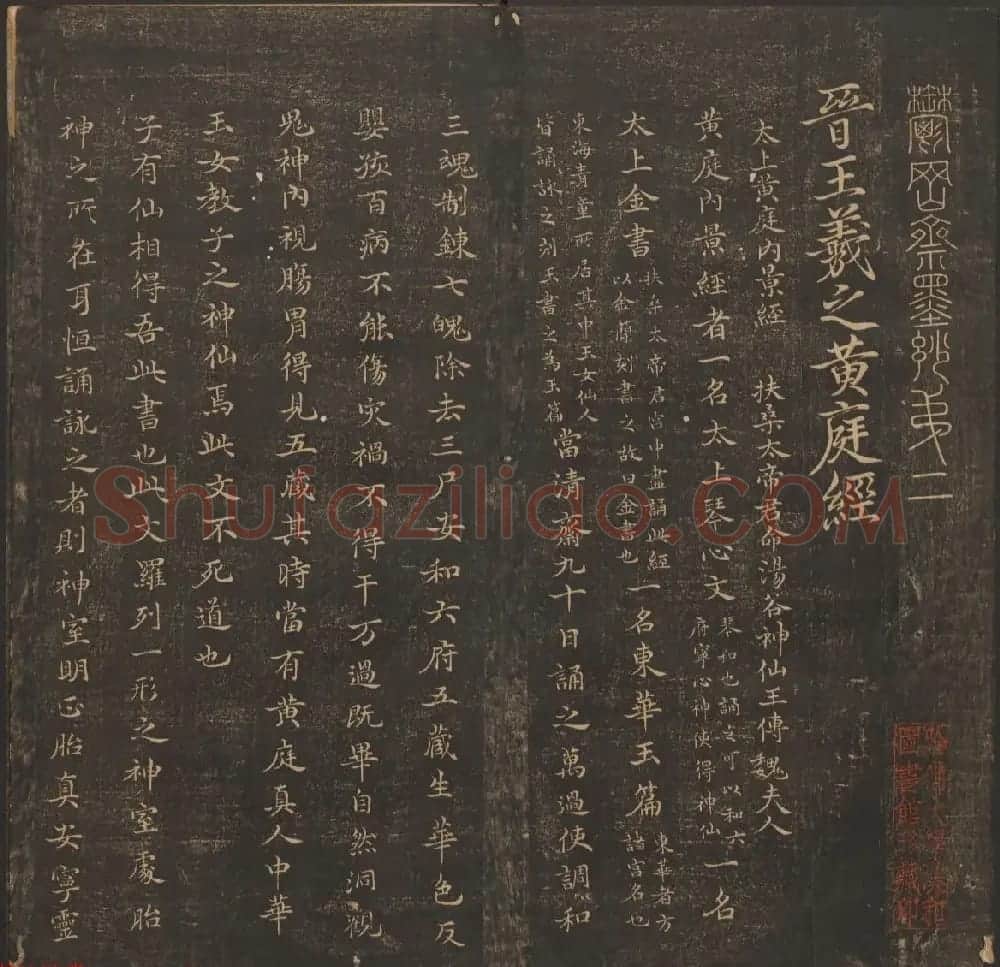 鬱岡齋墨妙第二
晉王羲之黃庭經
太上黃庭內景經 扶桑太帝君命湯谷神仙王傳魏夫人
黃庭內景經者一名太上琴心文琴和也誦之可以和六府寧心神使得神仙一名
太上金書扶桑太帝君宮中盡誦此經以金簡刻書之故曰金書也一名東華玉篇東華者方諸宮名也
東海青童所居其中玉女仙人皆誦詠之刻玉書之為玉篇當清齋九十日誦之萬過使調和
三魂制鍊七魄除去三尸安和六府五藏生華色反
嬰孩百病不能傷灾禍不得干万過既畢自然洞觀
鬼神內視腸胃得見五藏其時當有黃庭真人中華
玉女教子之神仙焉此文不死道也
子有仙相得吾此書也此文羅列一形之神室處胎
神之所在耳恒誦詠之者則神室明正胎真安寧靈
Shufazilido.COM